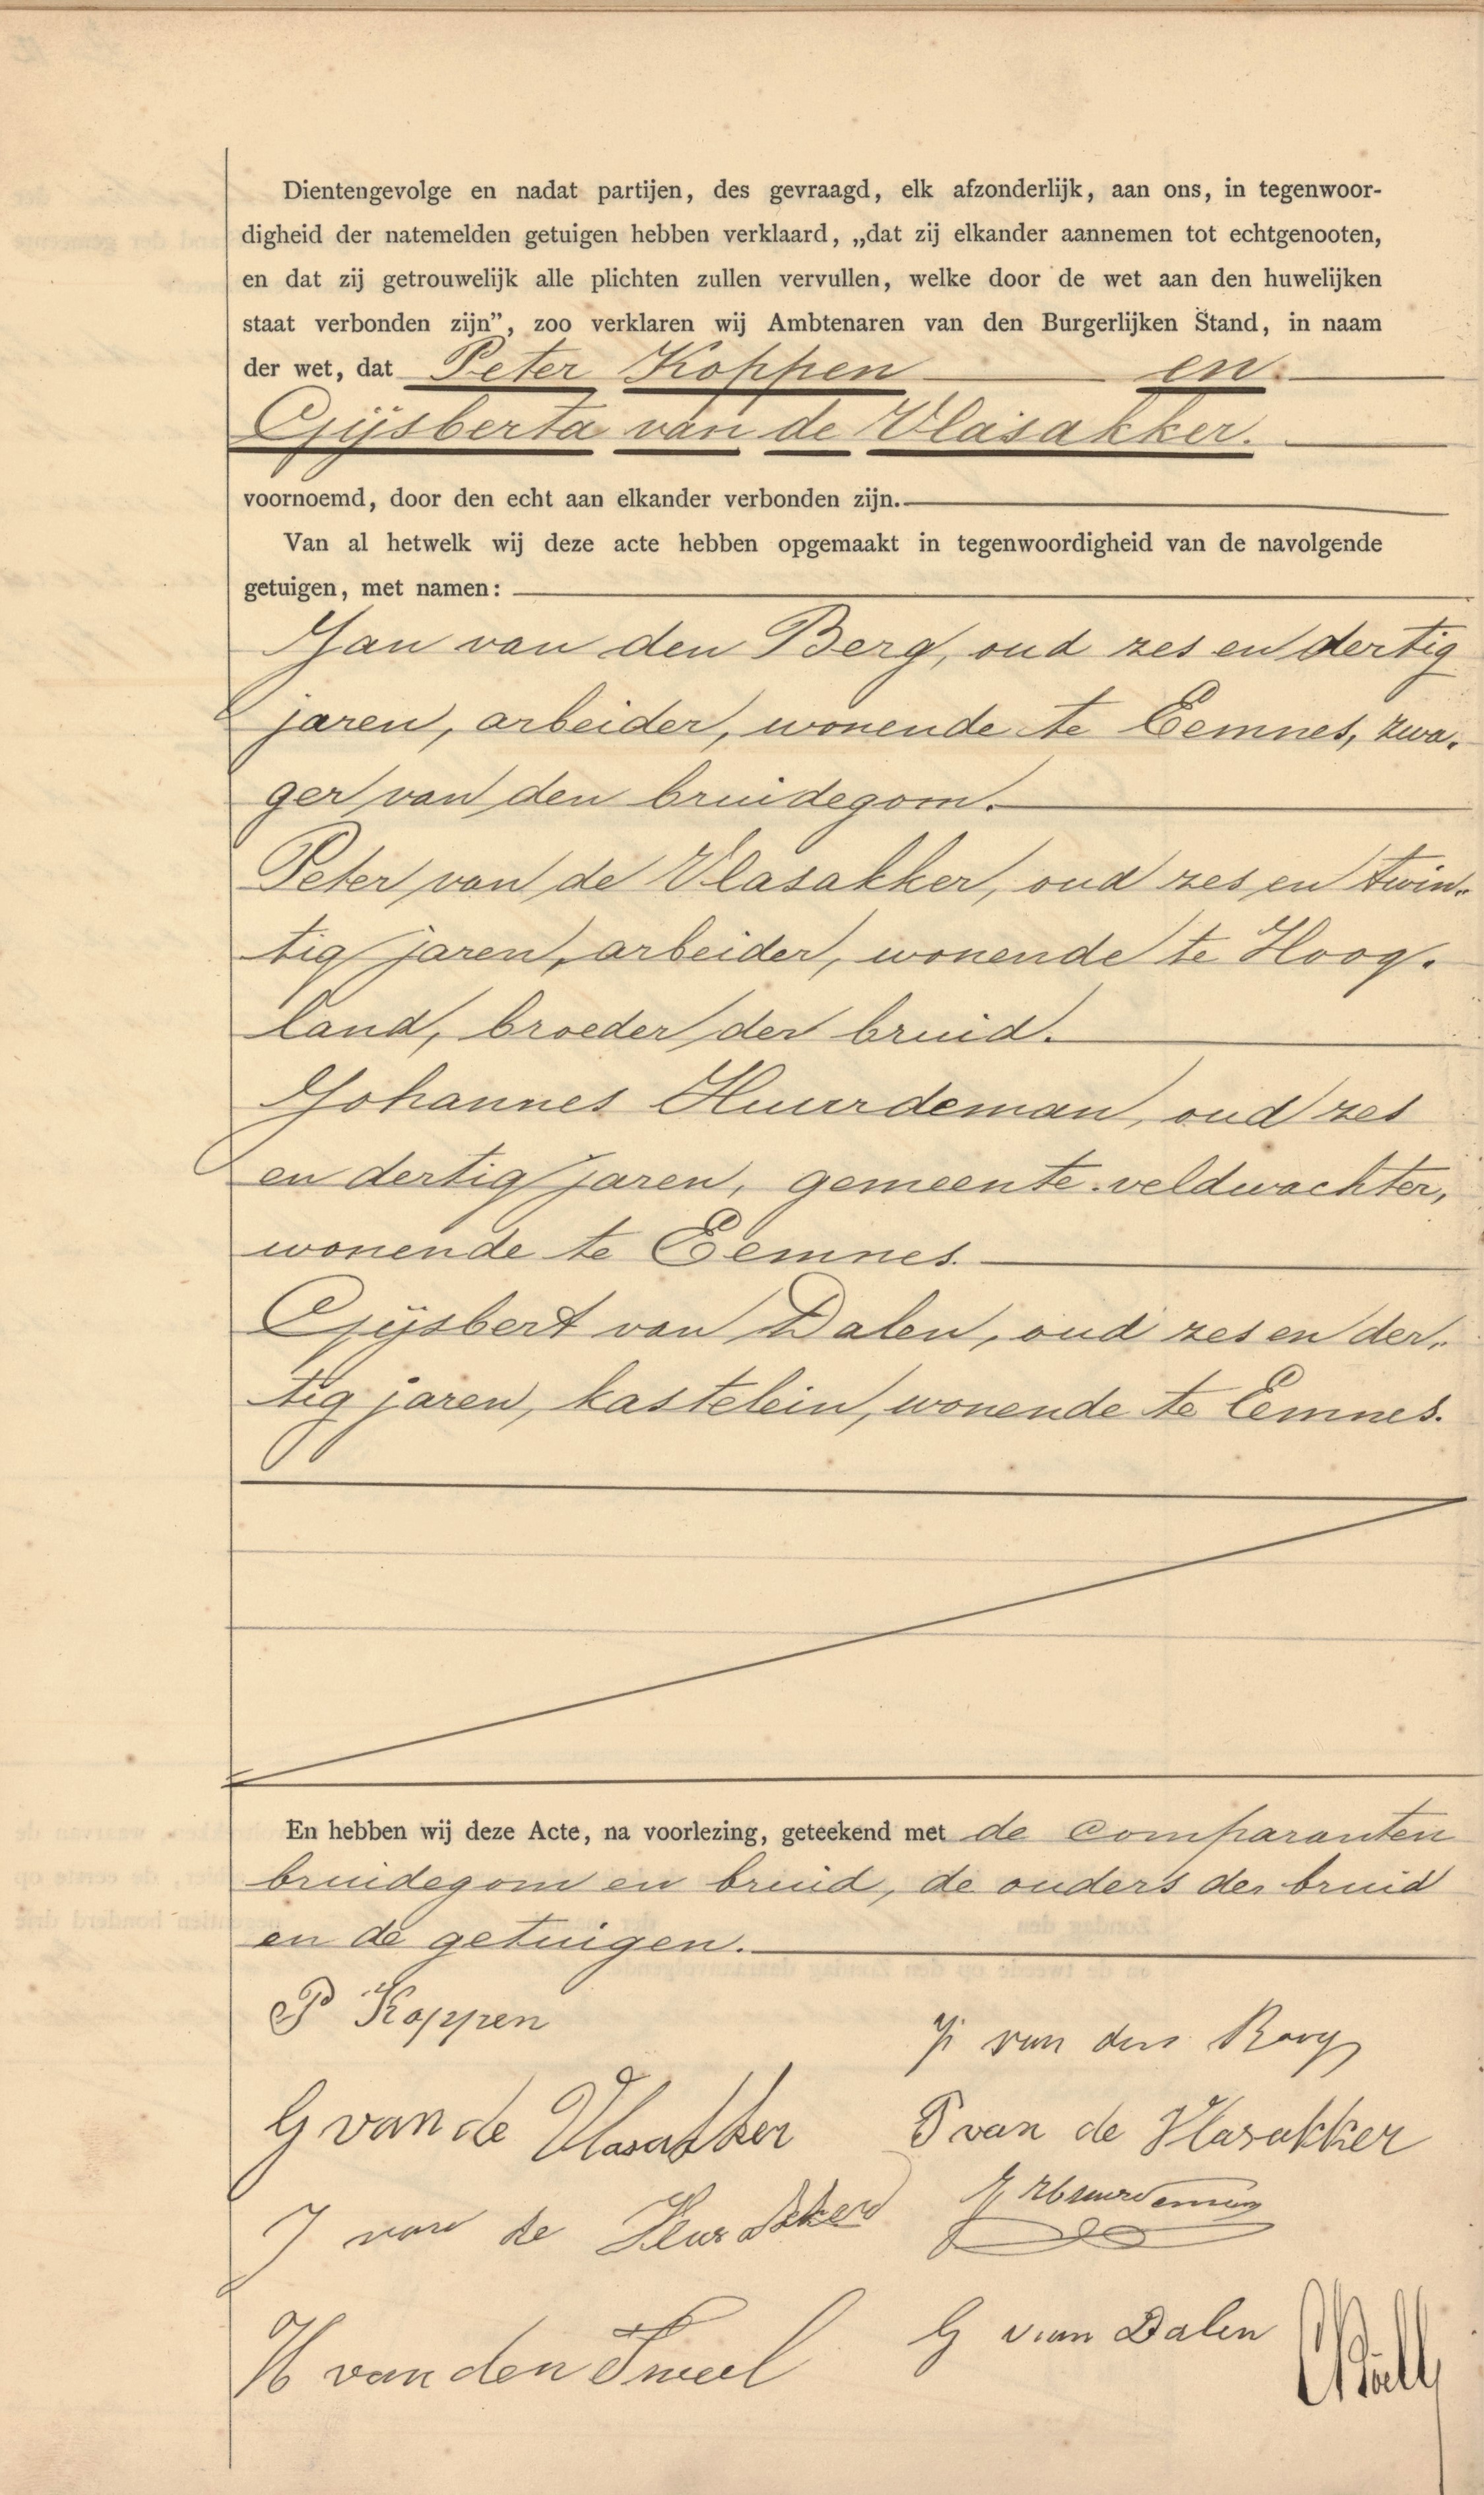 Dientengevolge en nadat partijen, des gevraagd, elk afzonderlijk, aan ons, in tegenwoor-
digheid der natemelden getuigen hebben verklaard, „dat zij elkander aannemen tot echtgenooten,
en dat zij getrouwelijk alle plichten zullen vervullen, welke door de wet aan den huwelijken
staat verbonden zijn”, zoo verklaren wij Ambtenaren van den Burgerlijken Stand, in naam
der wet, dat Peter Koppen en
Gijsberta van de Vlasakker.
voornoemd, door den echt aan elkander verbonden zijn.
Van al hetwelk wij deze acte hebben opgemaakt in tegenwoordigheid van de navolgende
getuigen, met namen:
Jan van den Berg, oud zes en dertig
jaren, arbeider, wonende te Eemnes, zwa-
ger van den bruidegom.
Peter van de Vlasakker, oud zes en twin-
tig jaren, arbeider, wonende te Hoog-
land, broeder der bruid.
Johannes Huurdeman, oud zes
en dertig jaren, gemeente-veldwachter,
wonende te Eemnes.
Gijsbert van Dalen, oud zes en der-
tig jaren, kastelein, wonende te Eemnes.
En hebben wij deze Acte, na voorlezing, geteekend met de comparanten
bruidegom en bruid, de ouders der bruid
en de getuigen.
P Koppen
J van den Berg
G van de Vlasakker
P van de Vlasakker
J van de Vlasakker
J Huurdeman
H van den Tweel
G van Dalen